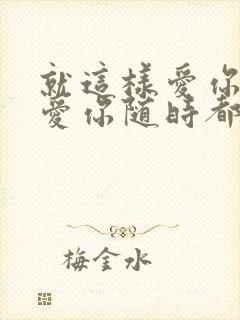 就這樣愛你
愛你隨時都
梅金水